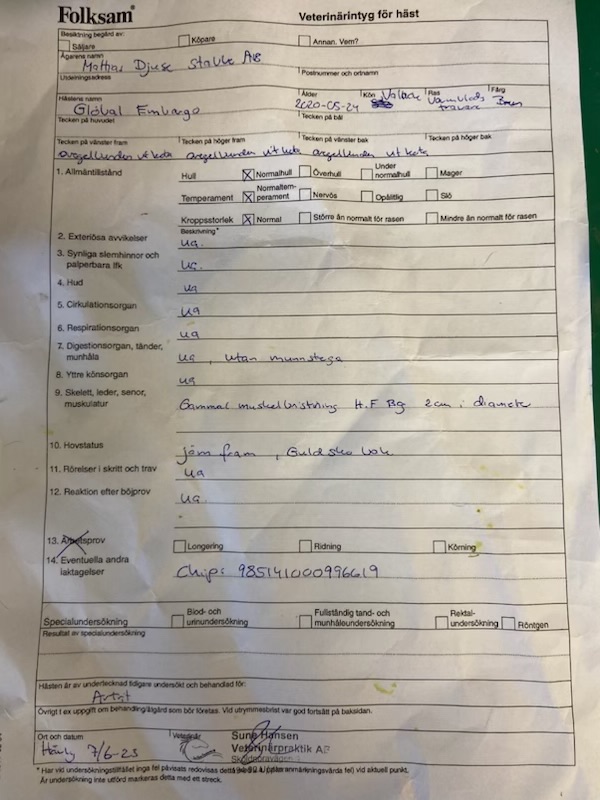 Folksam®
Veterinärintyg för häst
Besiktning begärd av:
Säljare
Köpare
Annan. Vem?
Ägarens namn
Mattias Djuse Stable AB
Utdelningsadress
Postnummer och ortnamn
Hästens namn
Global Embargo
Ålder
2020-05-24
Kön
Valack
Ras
Varmblods
travare
Färg
Brun
Tecken på huvudet
Tecken på bål
Tecken på vänster fram
Tecken på höger fram
Tecken på vänster bak
Tecken på höger bak
vit kota vit kota vit kota
1. Allmäntillstånd
Hull
X Normalhull
Överhull
Under normalhull
Mager
Temperament
X Normaltemperament
Nervös
Opålitlig
Slö
Kroppsstorlek
X Normal
Större än normalt för rasen
Mindre än normalt för rasen
Beskrivning*
2. Exteriösa avvikelser
ua.
3. Synliga slemhinnor och
palperbara lfk
ua.
4. Hud
ua
5. Cirkulationsorgan
ua
6. Respirationsorgan
ua
7. Digestionsorgan, tänder,
munhåla
ua, utan munstege
8. Yttre könsorgan
ua
9. Skelett, leder, senor,
muskulatur
Gammal muskelbristning H.F Bg 2cm i diameter
10. Hovstatus
järn fram, Guldsko bak.
11. Rörelser i skritt och trav
ua
12. Reaktion efter böjprov
ua.
13. Arbetsprov
Longering
Ridning
Körning
14. Eventuella andra
iakttagelser
Chip: 985141000996619
Specialundersökning
Blod- och
urinundersökning
Fullständig tand- och
munhåleundersökning
Rektal-
undersökning
Röntgen
Resultat av specialundersökning
Hästen är av undertecknad tidigare undersökt och behandlad för:
Artrit
Övrigt t ex uppgift om behandling/åtgärd som bör företas. Vid utrymmesbrist var god fortsätt på baksidan.
Ort och datum
7/6-23
Veterinär
Sune Hansen
Veterinärpraktik AB
* Har vid undersökningstillfället inga fel påvisats redovisas detta
anmärkningsvärda fel) vid aktuell punkt.
Är undersökning inte utförd markeras detta med ett streck.